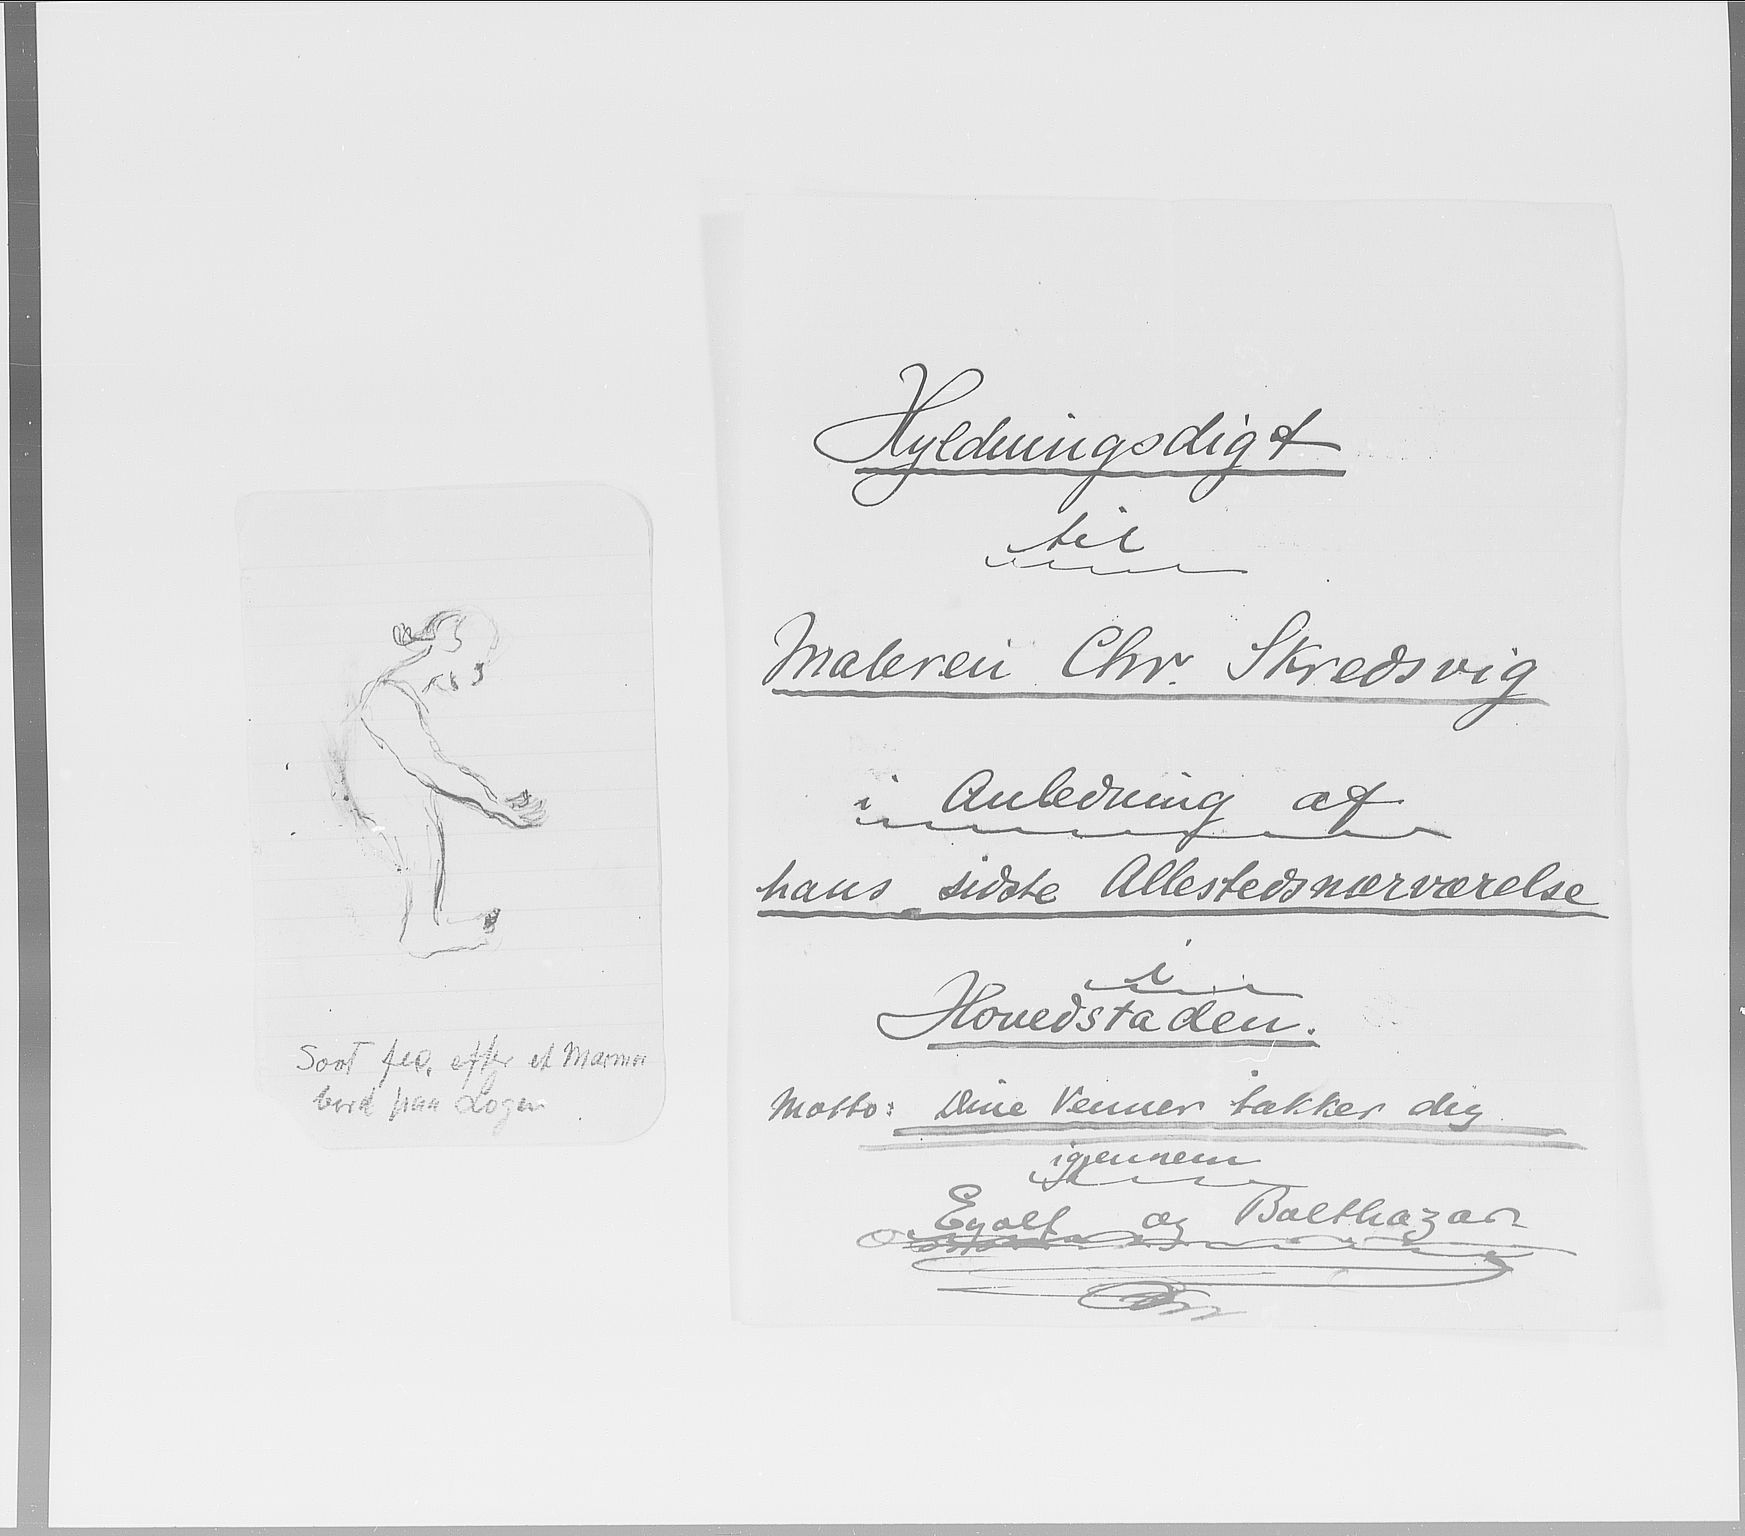 Soot fec. efter et Marmor
bord paa Logen
Hyldningsdigt
til
Maleren Chr. Skredsvig
i Anledning af
hans sidste Allestedsnærværelse
i
Hovedstaden.
Motto: Dine Venner takker dig
igjennem
Eyolf og Balthazar